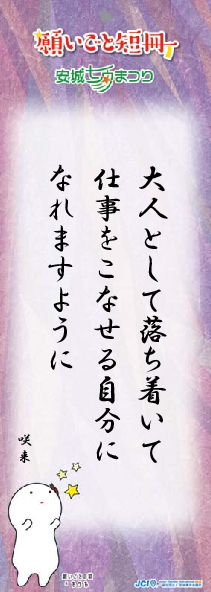 願いごと短冊
安城七夕まつり
大人として落ち着いて
仕事をこなせる自分に
なれますように
咲来
JCI